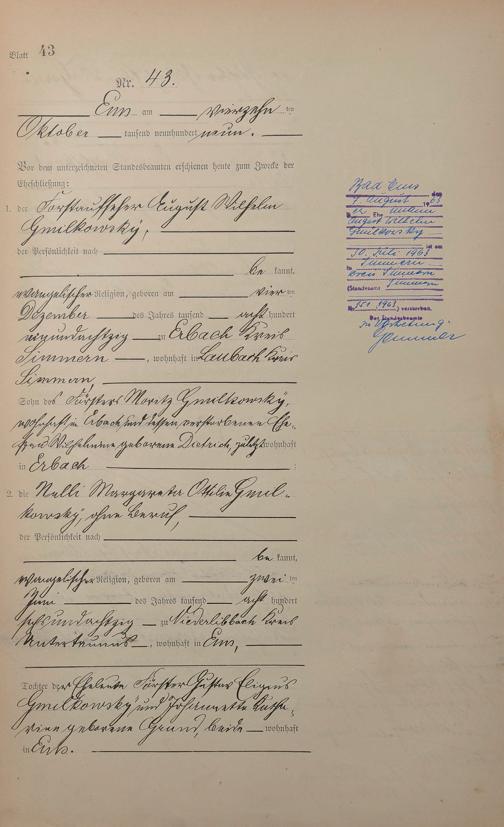 Blatt 43
Nr. 43.
Ems am vierzehn ten
Oktober tausend neunhundert neun.
Vor dem unterzeichneten Standesbeamten erschienen heute zum Zwecke der
Eheschließung:
1. der Forstaufseher August Wilhelm
Gmilkowsky,
der Persönlichkeit nach
be kannt,
evangelischer Religion, geboren am vier ten
Dezember des Jahres tausend acht hundert
achtzig zu Erbach Kreis
Simmern, wohnhaft in Laubach Kreis
Simmern,
Sohn des Försters Moritz Gmilkowsky,
wohnhaft in Erbach und dessen verstorbenen Ehe-
frau Wilhelmine geborene Dietrich, zuletzt wohnhaft
in Erbach
2. die Nelli Margareta Ottilie Gmil-
kowsky, ohne Beruf,
der Persönlichkeit nach
be kannt,
evangelischer Religion, geboren am zwei ten
Juni des Jahres tausend acht hundert
sechsundachtzig zu Niederlibbach Kreis
Untertaunus, wohnhaft in Ems,
Tochter der Eheleute Förster Gustav
Gmilkowsky und Johannette Katha-
rine geborene, beide wohnhaft
in Ems.
Bad Ems den
9. August 1963
Der Ehemann
August Wilhelm
Gmilkowsky
ist am
30. Juli 1963
in Simmern
Kreis Simmern
(Standesamt Simmern
Nr. 1963) verstorben.
Der Standesbeamte
In Vertretung: